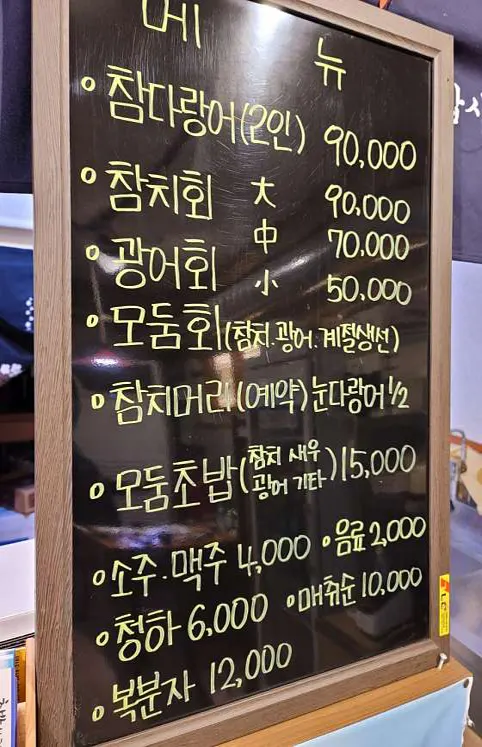 메 뉴
• 참다랑어(2인) 90,000
• 참치회 大 90,000
中 70,000
• 광어회 小 50,000
• 모둠회(참치.광어.계절생선)
• 참치머리(예약)눈다랑어 1/2
• 모둠초밥(참치 새우 광어 기타)15,000
• 소주.맥주 4,000 • 음료 2,000
• 청하 6,000 • 매취순 10,000
• 복분자 12,000